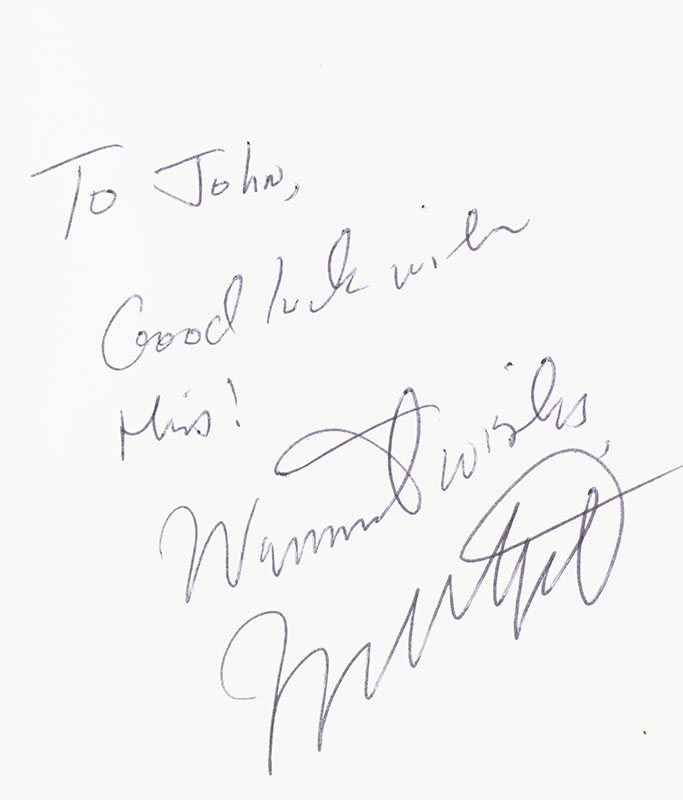 To John,
Good luck with
this!
Warmest wishes,